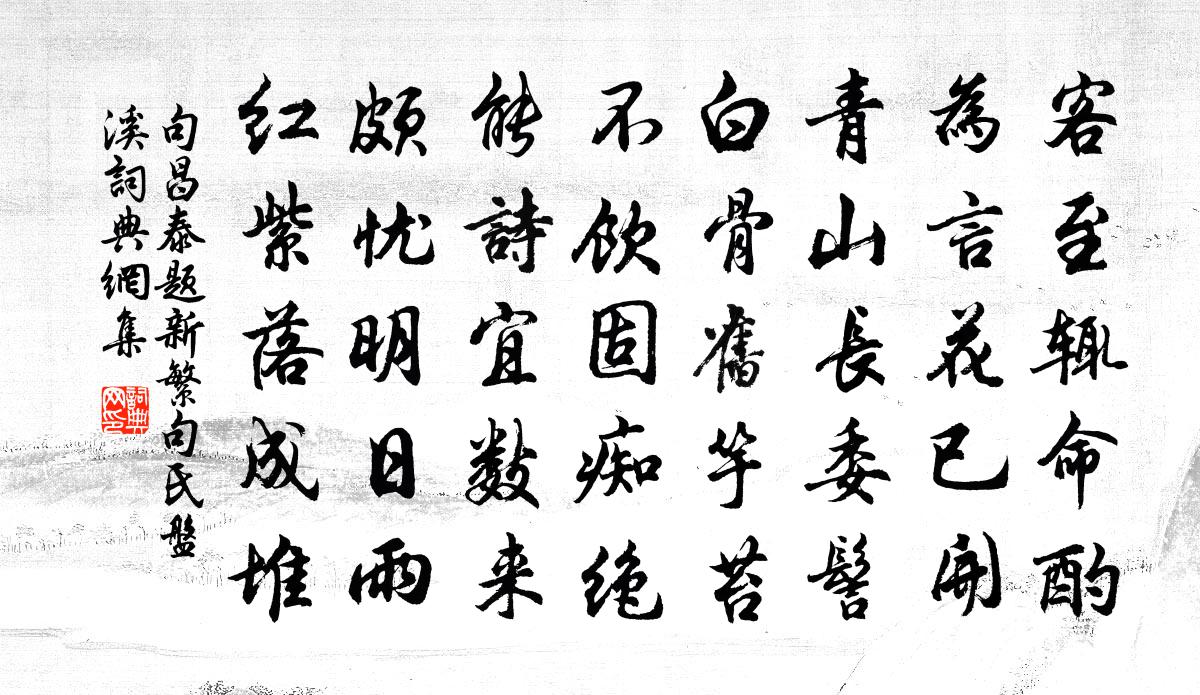 客至辄命酌
為言花已開
青山長委髻
白骨舊竿苔
不饮固痴绝
能詩宜数来
颇忧明日雨
红紫落成堆
句昌泰題新繁句氏盤
溪詞典網集
詞典
网印